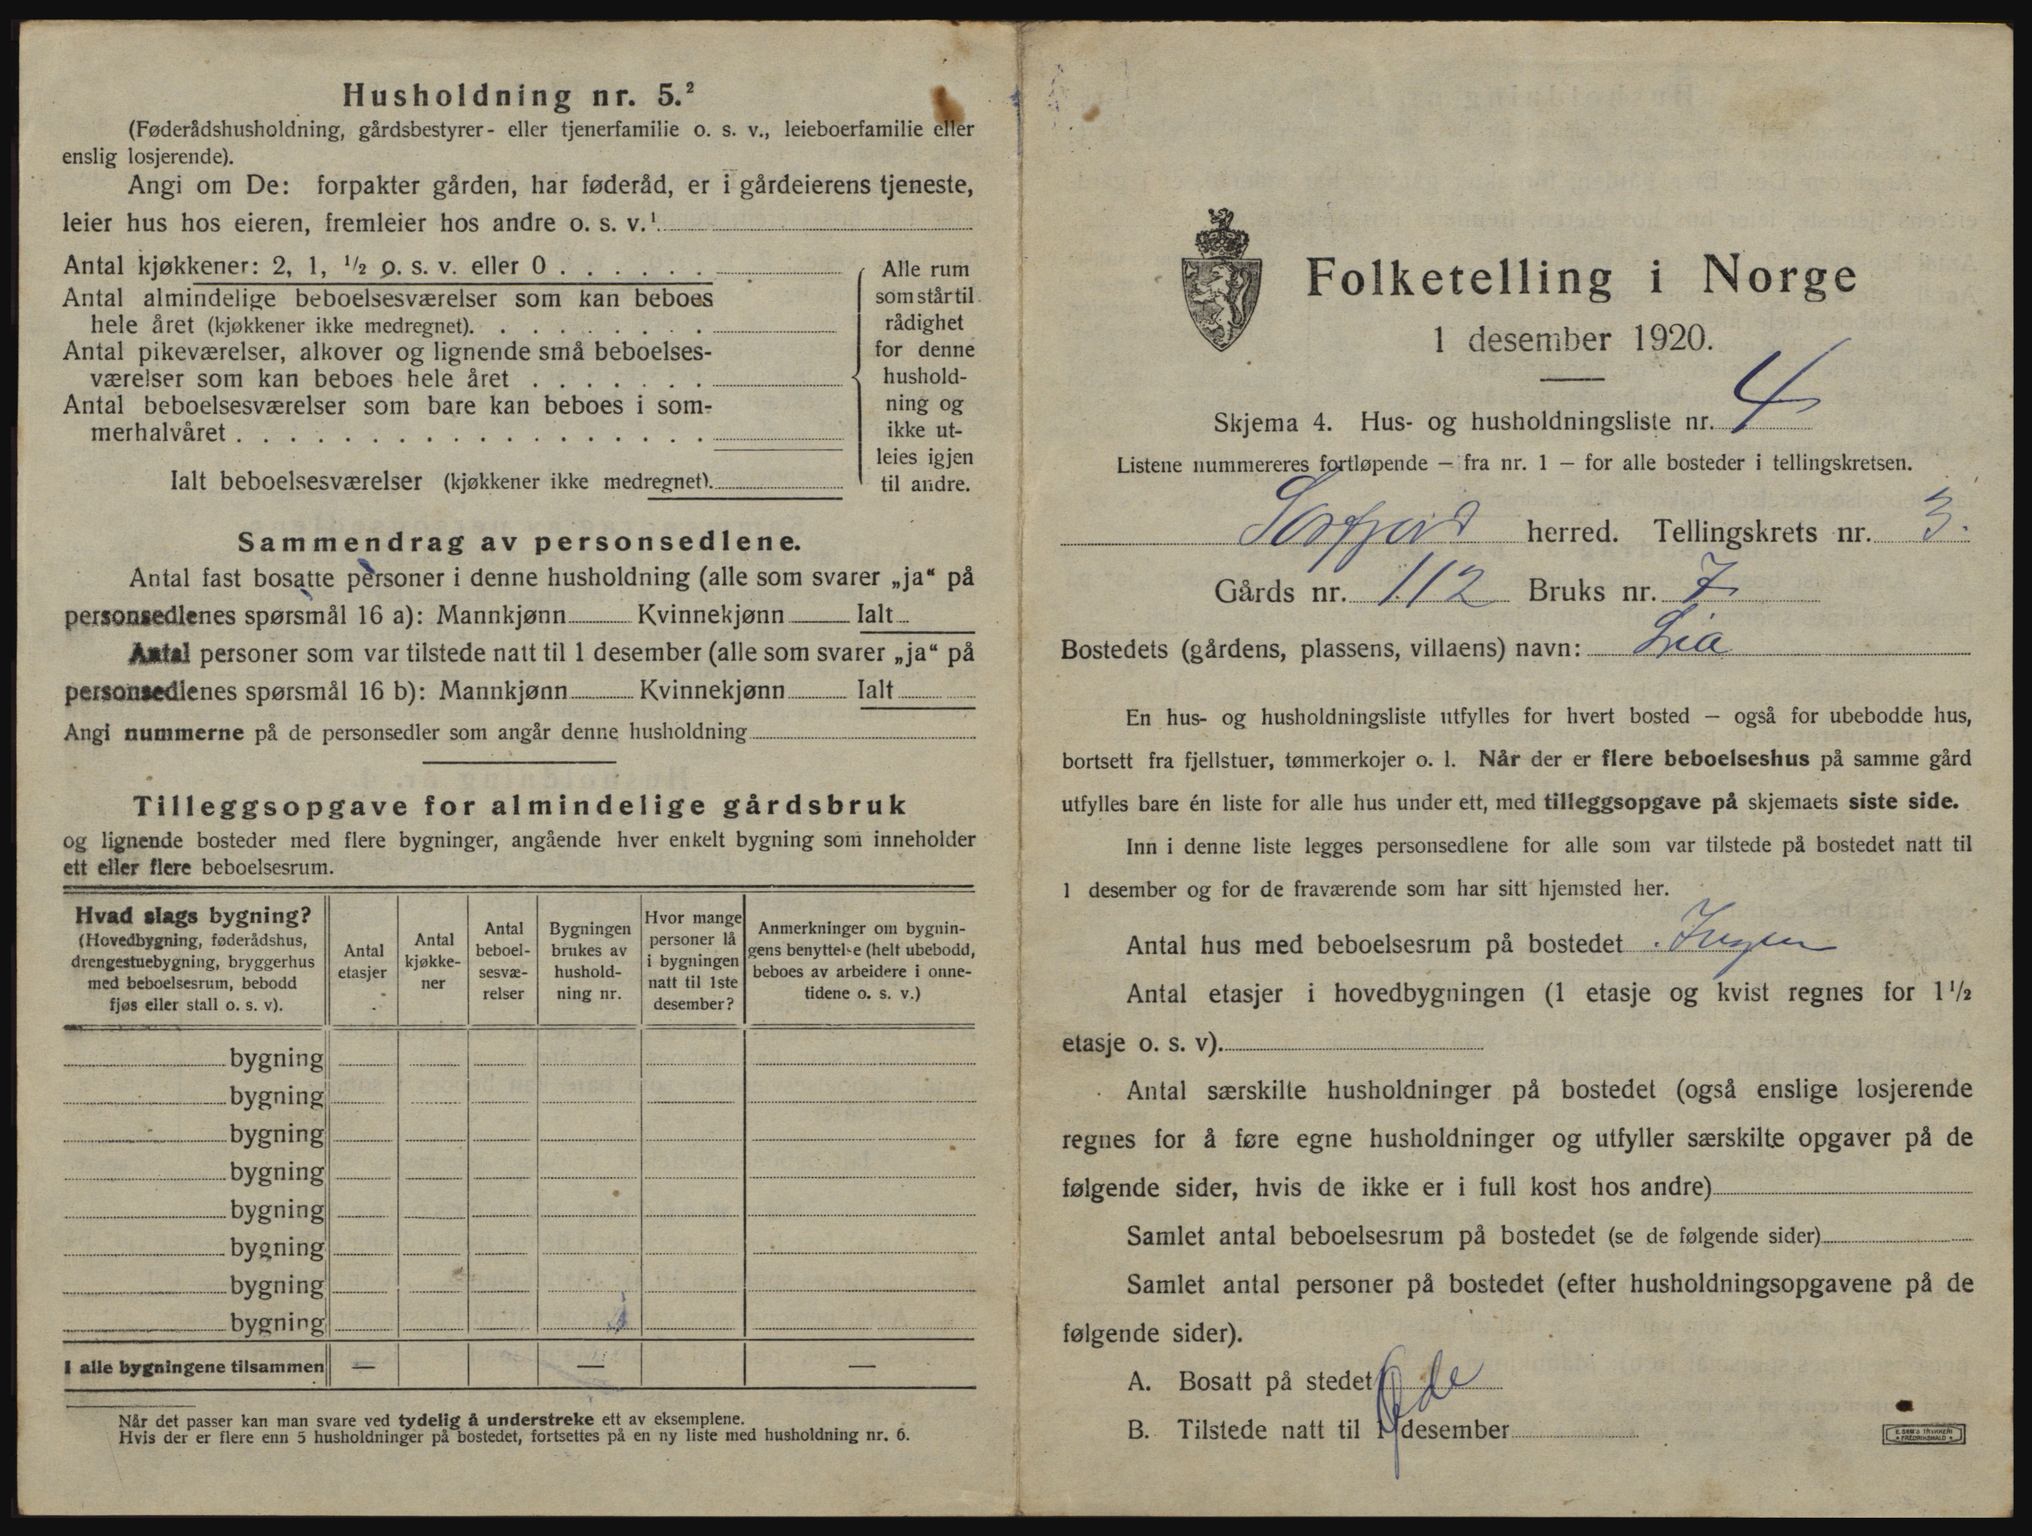 Husholdning nr. 5.²
(Føderådshusholdning, gårdsbestyrer- eller tjenerfamilie o. s. v., leieboerfamilie eller
enslig losjerende).
Angi om De: forpakter gården, har føderåd, er i gårdeierens tjeneste,
leier hus hos eieren, fremleier hos andre o. s. v.¹
Antal kjøkkener: 2, 1, ½ o. s. v. eller 0 . . . . . .
Antal almindelige beboelsesværelser som kan beboes
hele året (kjøkkener ikke medregnet). . . . . . . . .
Antal pikeværelser, alkover og lignende små beboelses-
værelser som kan beboes hele året . . . . . . .
Antal beboelsesværelser som bare kan beboes i som-
merhalvåret . . . . . . . . . . . . . . . . . .
Ialt beboelsesværelser (kjøkkener ikke medregnet).
Alle rum
som står til
rådighet
for denne
hushold-
ning og
ikke ut-
leies igjen
til andre.
Sammendrag av personsedlene.
Antal fast bosatte personer i denne husholdning (alle som svarer „ja“ på
personsedlenes spørsmål 16 a): Mannkjønn Kvinnekjønn Ialt
Antal personer som var tilstede natt til 1 desember (alle som svarer „ja“ på
personsedlenes spørsmål 16 b): Mannkjønn Kvinnekjønn Ialt
Angi nummerne på de personsedler som angår denne husholdning
Tilleggsopgave for almindelige gårdsbruk
og lignende bosteder med flere bygninger, angående hver enkelt bygning som inneholder
ett eller flere beboelsesrum.
Hvad slags bygning?
(Hovedbygning, føderådshus,
drengestuebygning, bryggerhus
med beboelsesrum, bebodd
fjøs eller stall o. s. v).
Antal
etasjer
Antal
kjøkke-
ner
Antal
beboel-
sesvæ-
relser
Bygningen
brukes av
hushold-
ning nr.
Hvor mange
personer lå
i bygningen
natt til 1ste
desember?
Anmerkninger om bygnin-
gens benyttelse (helt ubebodd,
beboes av arbeidere i onne-
tidene o. s. v.)
bygning
bygning
bygning
bygning
bygning
bygning
bygning
bygning
I alle bygningene tilsammen — — —
Når det passer kan man svare ved tydelig å understreke ett av eksemplene.
Hvis der er flere enn 5 husholdninger på bostedet, fortsettes på en ny liste med husholdning nr. 6.
Folketelling i Norge
1 desember 1920.
Skjema 4. Hus- og husholdningsliste nr. 4
Listene nummereres fortløpende – fra nr. 1 – for alle bosteder i tellingskretsen.
Sørfjord herred. Tellingskrets nr. 3.
Gårds nr. 112 Bruks nr. 7
Bostedets (gårdens, plassens, villaens) navn: Lia
En hus- og husholdningsliste utfylles for hvert bosted – også for ubebodde hus,
bortsett fra fjellstuer, tømmerkojer o. l. Når der er flere beboelseshus på samme gård
utfylles bare én liste for alle hus under ett, med tilleggsopgave på skjemaets siste side.
Inn i denne liste legges personsedlene for alle som var tilstede på bostedet natt til
1 desember og for de fraværende som har sitt hjemsted her.
Antal hus med beboelsesrum på bostedet Ingen
Antal etasjer i hovedbygningen (1 etasje og kvist regnes for 1½
etasje o. s. v).
Antal særskilte husholdninger på bostedet (også enslige losjerende
regnes for å føre egne husholdninger og utfyller særskilte opgaver på de
følgende sider, hvis de ikke er i full kost hos andre)
Samlet antal beboelsesrum på bostedet (se de følgende sider)
Samlet antal personer på bostedet (efter husholdningsopgavene på de
følgende sider).
A. Bosatt på stedet Øde
B. Tilstede natt til 1 desember
E. SEM'S TRYKKERI
FREDRIKSHALD